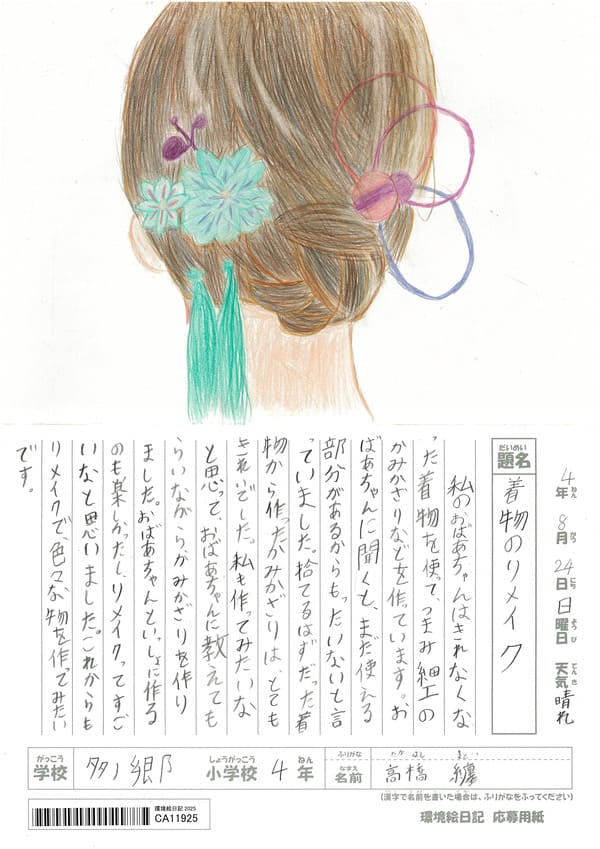 4年 8月 24日 日曜日 天気 晴れ
ねん がつ にち ようび てんき
だいめい
題名 着物のリメイク
私のおばあちゃんはきれなくな
った着物を使って、つまみ細工の
かみかざりなどを作っています。お
ばあちゃんに聞くと、まだ使える
部分があるからもったいないと言
っていました。捨てるはずだった着
物から作ったかみかざりは、とても
きれいでした。私も作ってみたいな
と思って、おばあちゃんに教えても
らいながら、かみかざりを作り
ました。おばあちゃんといっしょに作る
のも楽しかったし、リメイクってすご
いなと思いました。これからも
リメイクで、色々な物を作てみたい
です。
がっこう しょうがっこう ねん ふりがな たかはし まとい
学校 郷 小学校 4年 なまえ 名前 高橋 纏
(漢字で名前を書いた場合は、ふりがなをふってください)
環境絵日記 2025
CA11925
環境絵日記 応募用紙